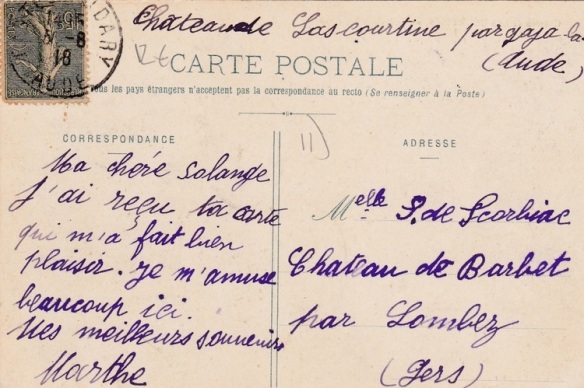 Chateau de Lascourtine par gaja la
(Aude)
CARTE POSTALE
les pays étrangers n'acceptent pas la correspondance au recto (Se renseigner à la Poste)
CORRESPONDANCE
Ma chère solange
J'ai reçu ta carte
qui m'a fait bien
plaisir. je m'amuse
beaucoup ici.
Mes meilleurs souvenirs
Marthe
ADRESSE
Melle S. de Scorbiac
Chateau de Barbet
par Lombez
(Gers)
AUDE